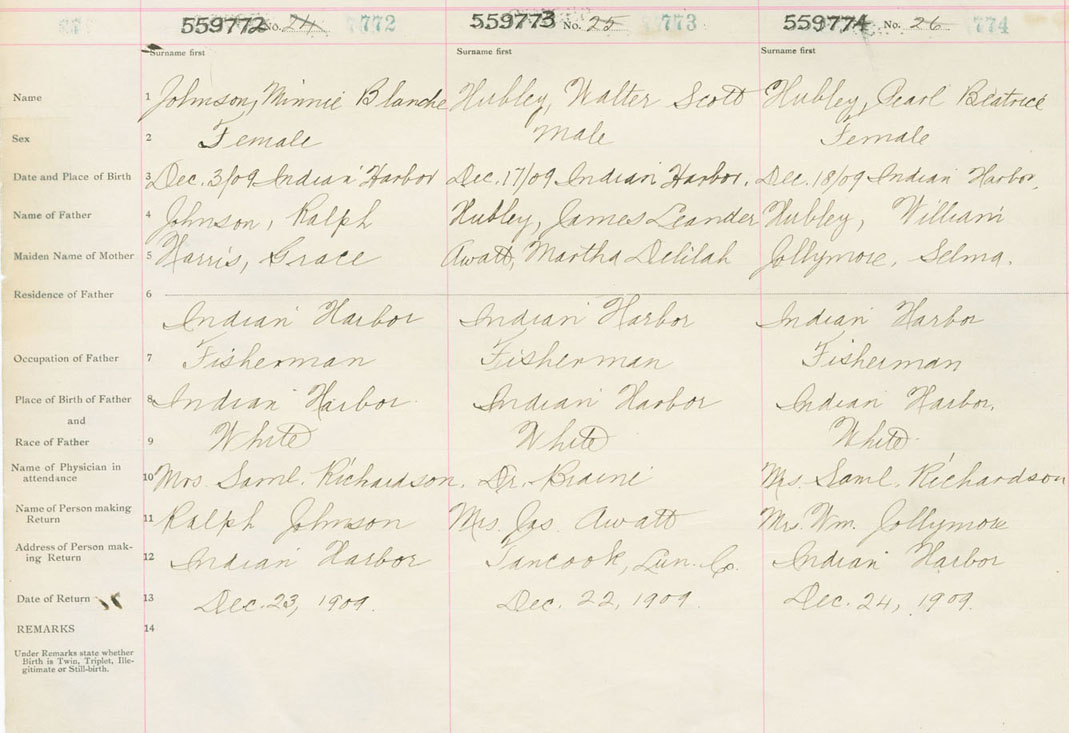 559772 No. 24 772 559773 No. 25 773 559774 No. 26 774
Surname first Surname first Surname first
Name 1 Johnson, Minnie Blanche Hubley, Walter Scott Hubley, Pearl Beatrice
Sex 2 Female Male Female
Date and Place of Birth 3 Dec. 3/09 Indian Harbor Dec. 17/09 Indian Harbor. Dec. 18/09 Indian Harbor.
Name of Father 4 Johnson, Ralph Hubley, James Leander Hubley, William
Maiden Name of Mother 5 Harris, Grace Awatt, Martha Delilah Jollymore, Selma.
Residence of Father 6
Indian Harbor Indian Harbor Indian Harbor
Occupation of Father 7 Fisherman Fisherman Fisherman
Place of Birth of Father 8 Indian Harbor Indian Harbor Indian Harbor.
and
Race of Father 9 White White White
Name of Physician in
attendance 10 Mrs. Saml. Richardson. Dr. Braine Mrs. Saml. Richardson
Name of Person making
Return 11 Ralph Johnson Mrs. Jas. Awatt Mrs. Wm. Jollymore
Address of Person mak-
ing Return 12 Indian Harbor Tancook, Lun. Co. Indian Harbor
Date of Return 13 Dec. 23, 1909. Dec. 22, 1909. Dec. 24, 1909.
REMARKS 14
Under Remarks state whether
Birth is Twin, Triplet, Ille-
gitimate or Still-birth.